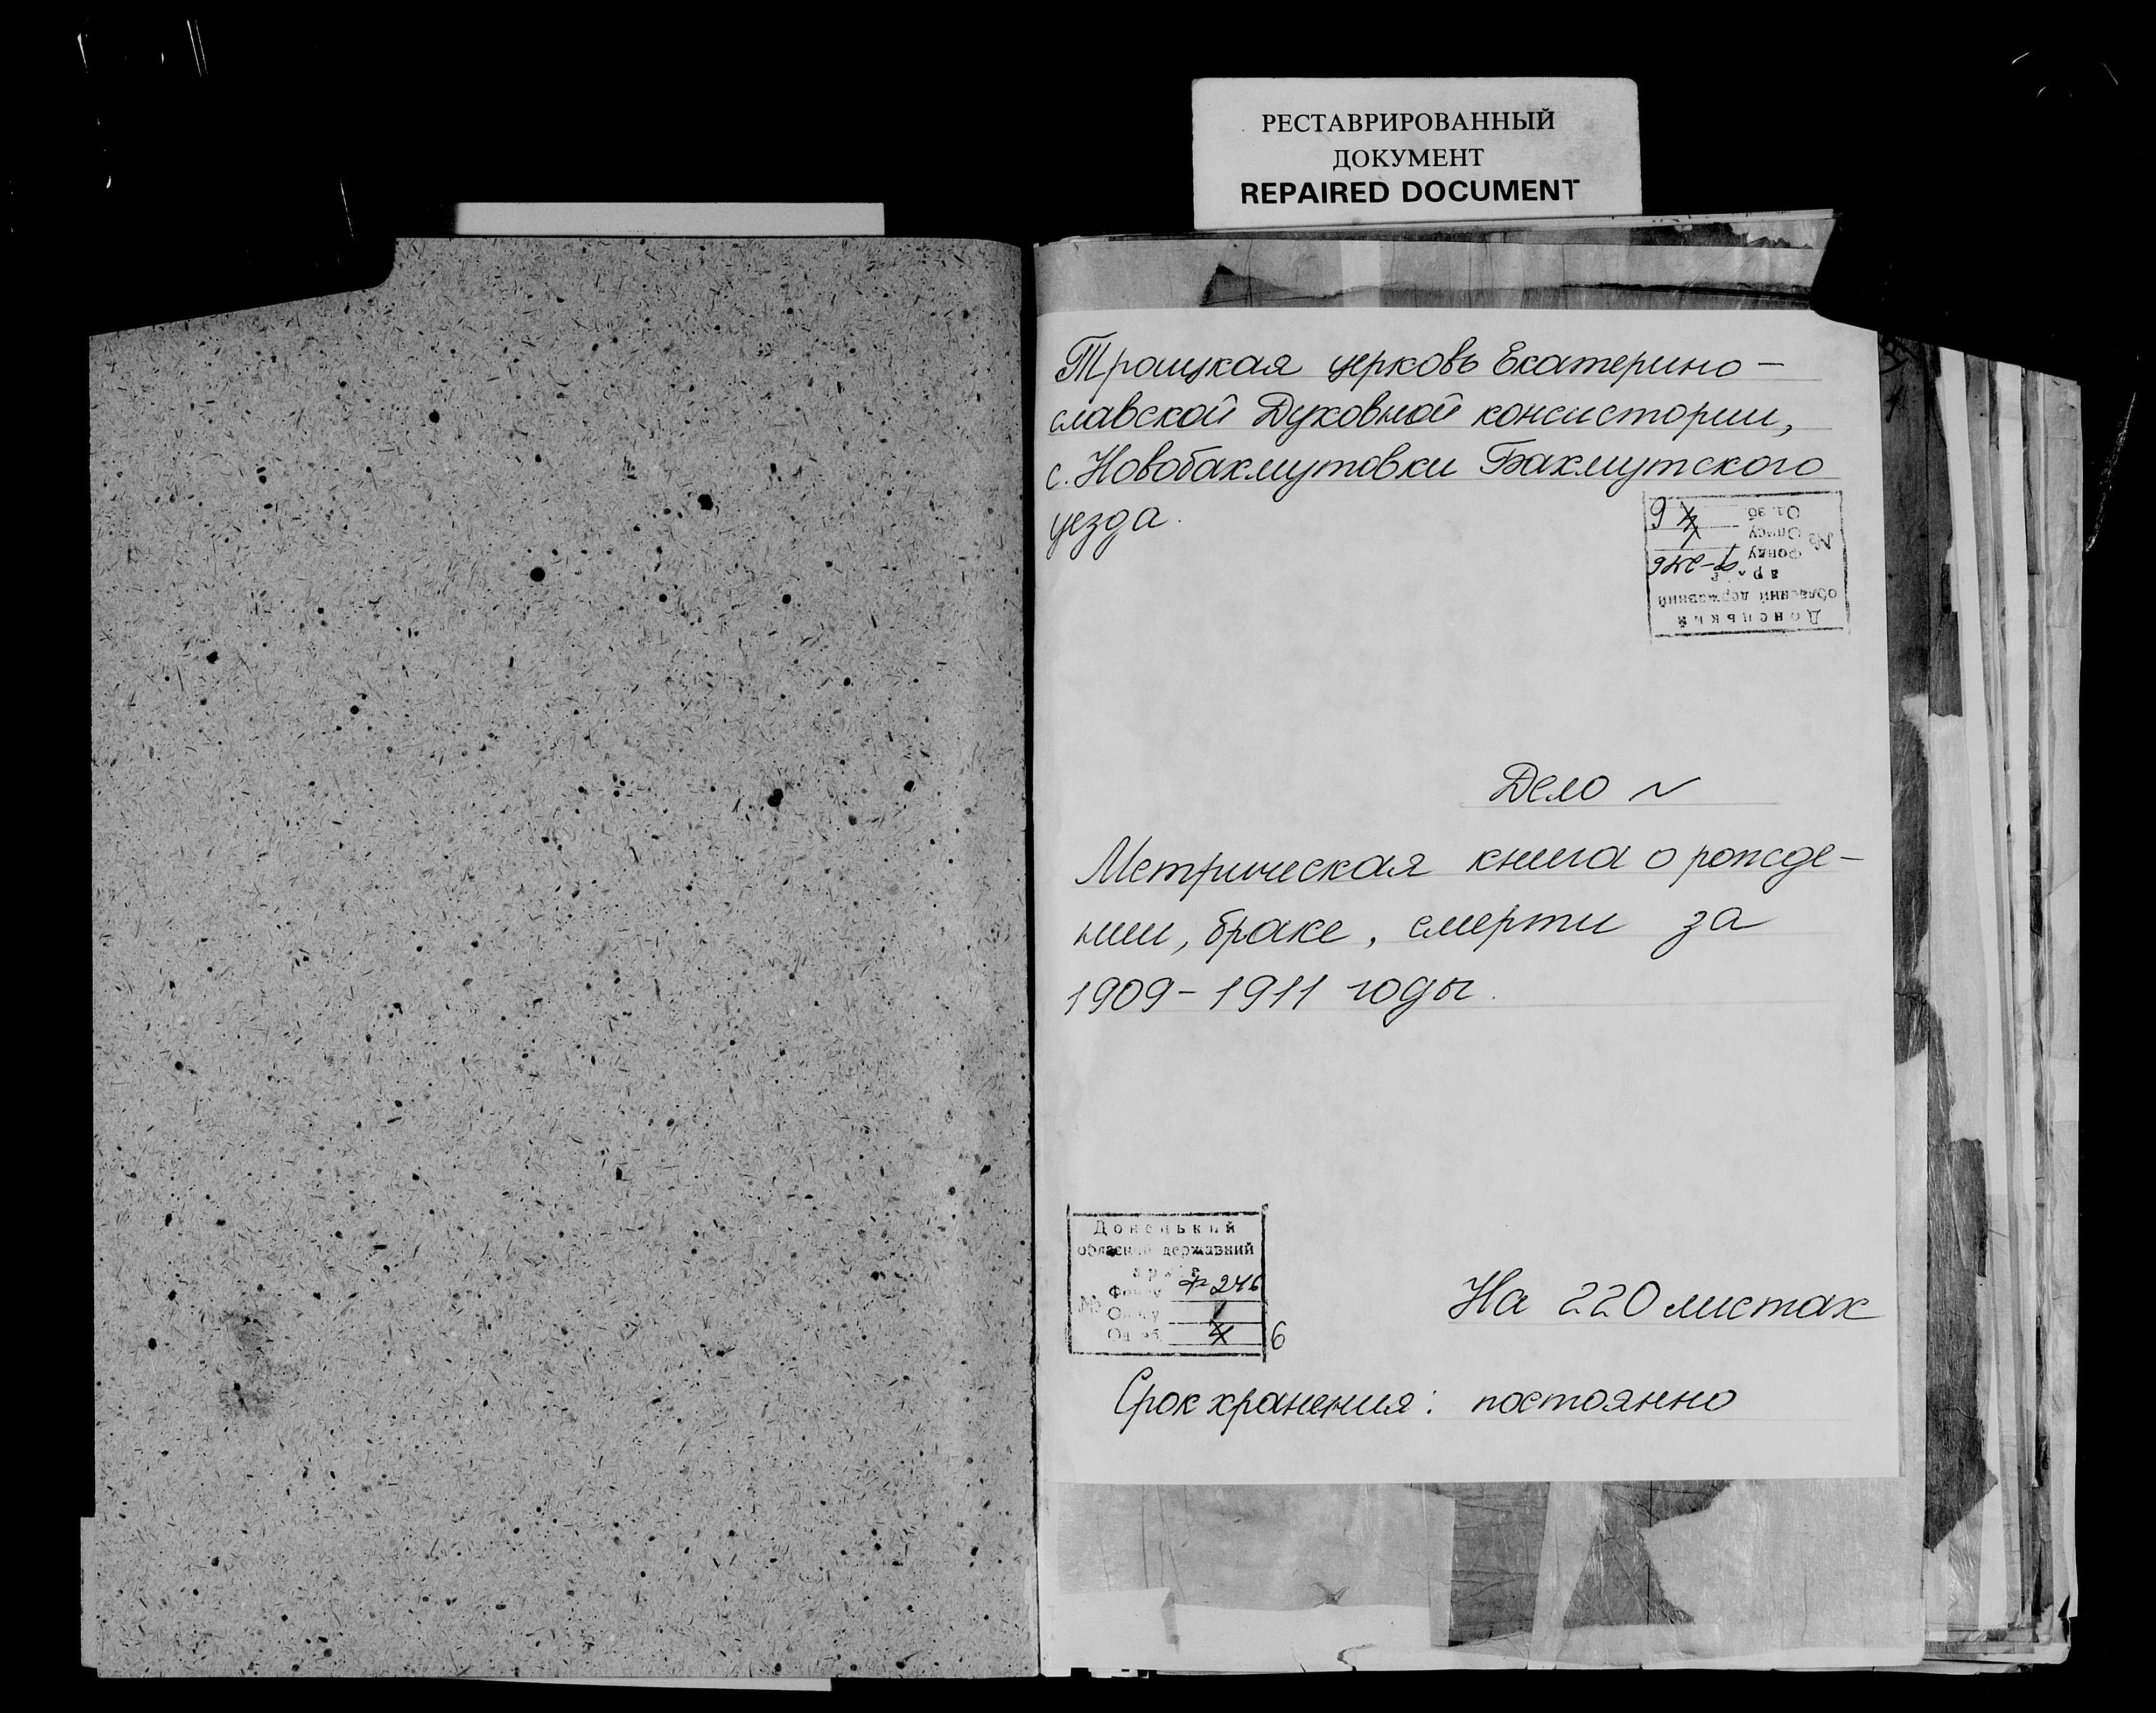 РЕСТАВРИРОВАННЫЙ
ДОКУМЕНТ
REPAIRED DOCUMENT
Троицкая церковь Екатерино-
славской Духовной консистории,
с. Новобахмутовки Бахмутского
уезда.
Донецький
обласний державний
архів
№ Фонду ф-246
Опису 1
Од. зб. 4 6
Дело N
Метрическая книга о рожде-
нии, браке, смерти за
1909-1911 годы.
Донецький
обласний державний
архів
№ Фонду ф-246
Опису 1
Од. зб. 4 6
На 220 листах
Срок хранения: постоянно